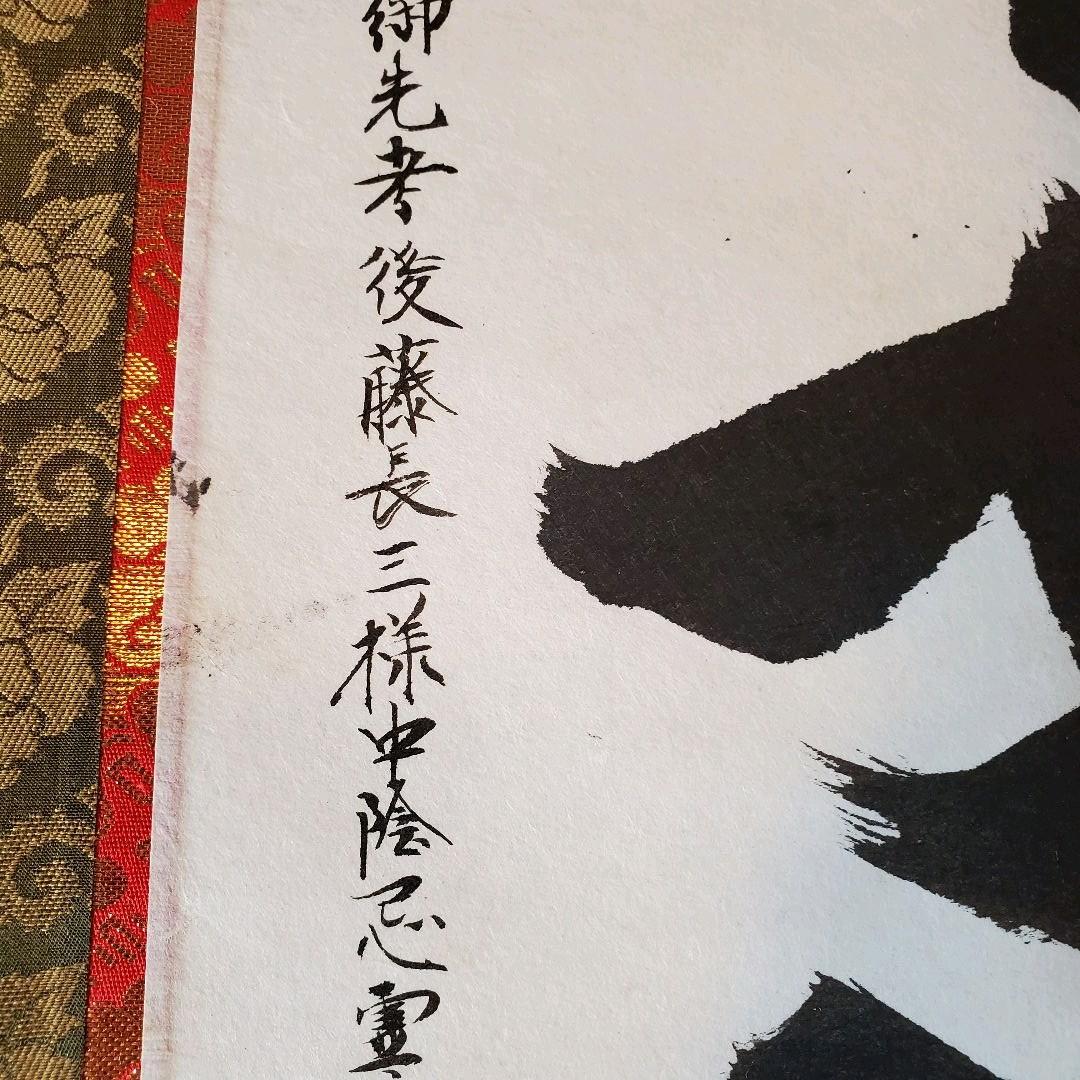 御先考後藤長三様中陰忌霊